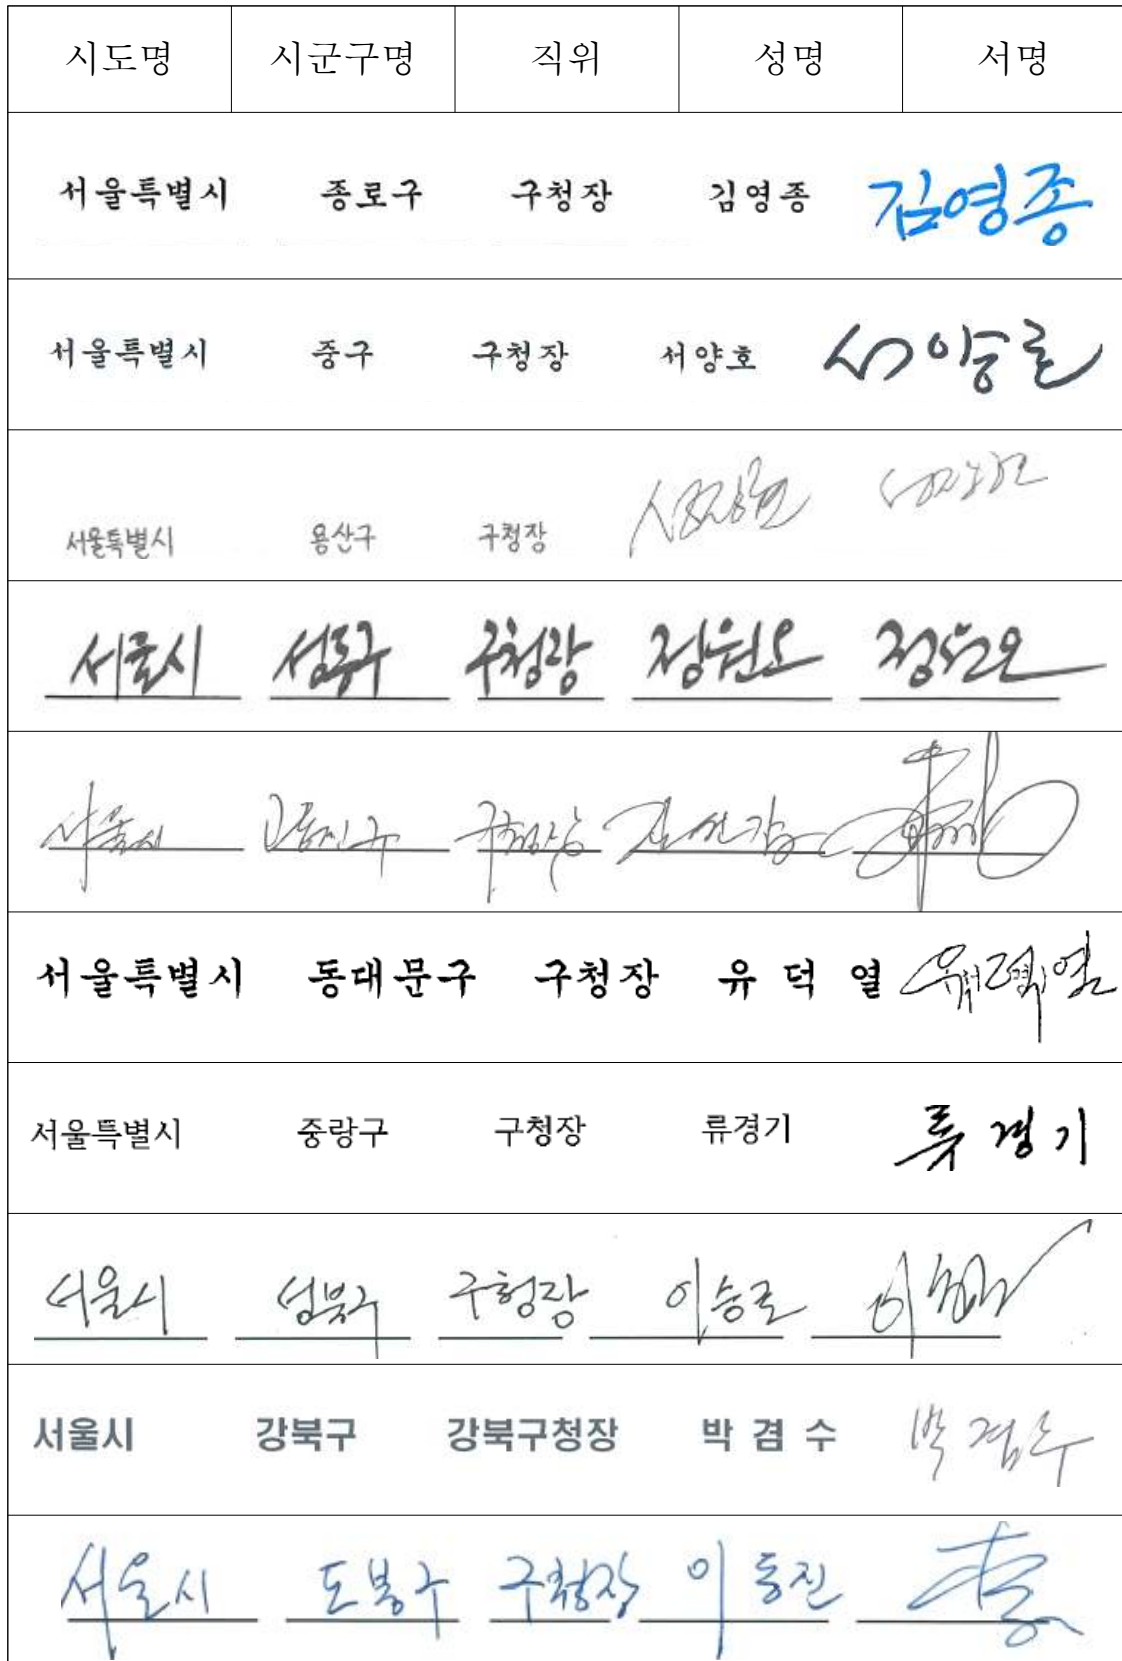 시도명 시군구명 직위 성명 서명
서울특별시 종로구 구청장 김영종 김영종
서울특별시 중구 구청장 서양호 서양호
서울특별시 용산구 구청장 성장현
서울시 성동구 구청장 정원오 정원오
서울시 광진구 구청장 김선갑
서울특별시 동대문구 구청장 유 덕 열 유덕열
서울특별시 중랑구 구청장 류경기 류경기
서울시 성북구 구청장 이승로
서울시 강북구 강북구청장 박 겸 수 박겸수
서울시 도봉구 구청장 이동진